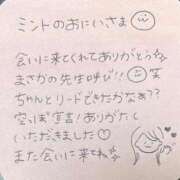 ミントのおにいさま
会いに来てくれてありがとう
まさかの先生呼び!! 笑
ちゃんとリードできたかなぁ??
空っぽ写言!ありがたく
いただきました♡
また会いに来てね